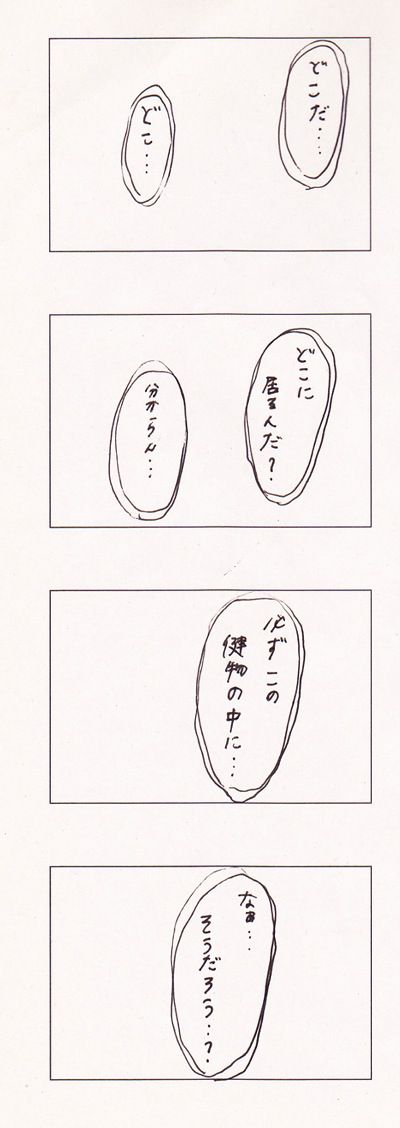 どこだ……
どこ…
どこに
居るんだ？
分からん…
必ずこの
健物の中に…
なぁ…
そうだろう…？